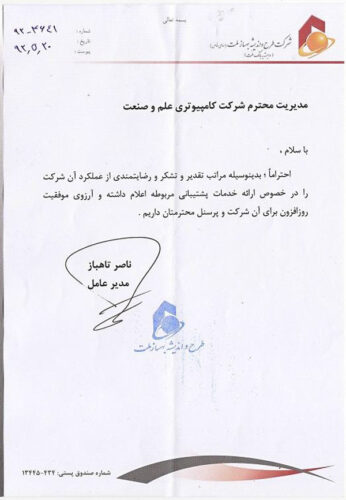 بسمه تعالی
شماره : ۹۲-۳۶۴۱
تاریخ : ۹۲,۵,۲۰
پیوست :
شرکت طرح و اندیشه بهساز ملت
مدیریت محترم شرکت کامپیوتری علم و صنعت
با سلام ،
احتراماً ؛ بدینوسیله مراتب تقدیر و تشکر و رضایتمندی از عملکرد آن شرکت
را در خصوص ارائه خدمات پشتیبانی مربوطه اعلام داشته و آرزوی موفقیت
روزافزون برای آن شرکت و پرسنل محترمتان داریم .
ناصر تاهباز
مدیر عامل
طرح و اندیشه بهساز ملت
شماره صندوق پستی: ۴۳۴-۱۳۴۴۵